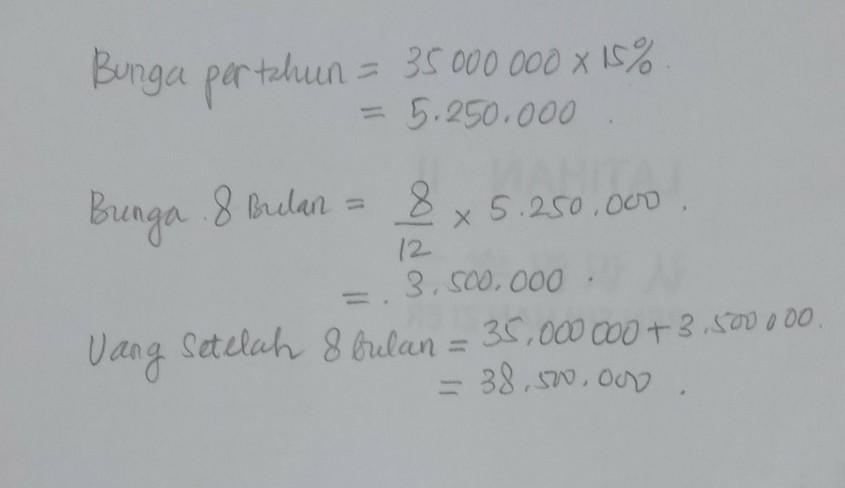 Bunga pertahun = 35 000 000 x 15%.
= 5.250.000.
Bunga. 8 Bulan = 8/12 x 5.250.000.
=. 3.500.000.
Uang Setelah 8 bulan = 35.000 000 + 3.500 000.
= 38.500.000.
LATIHAN II